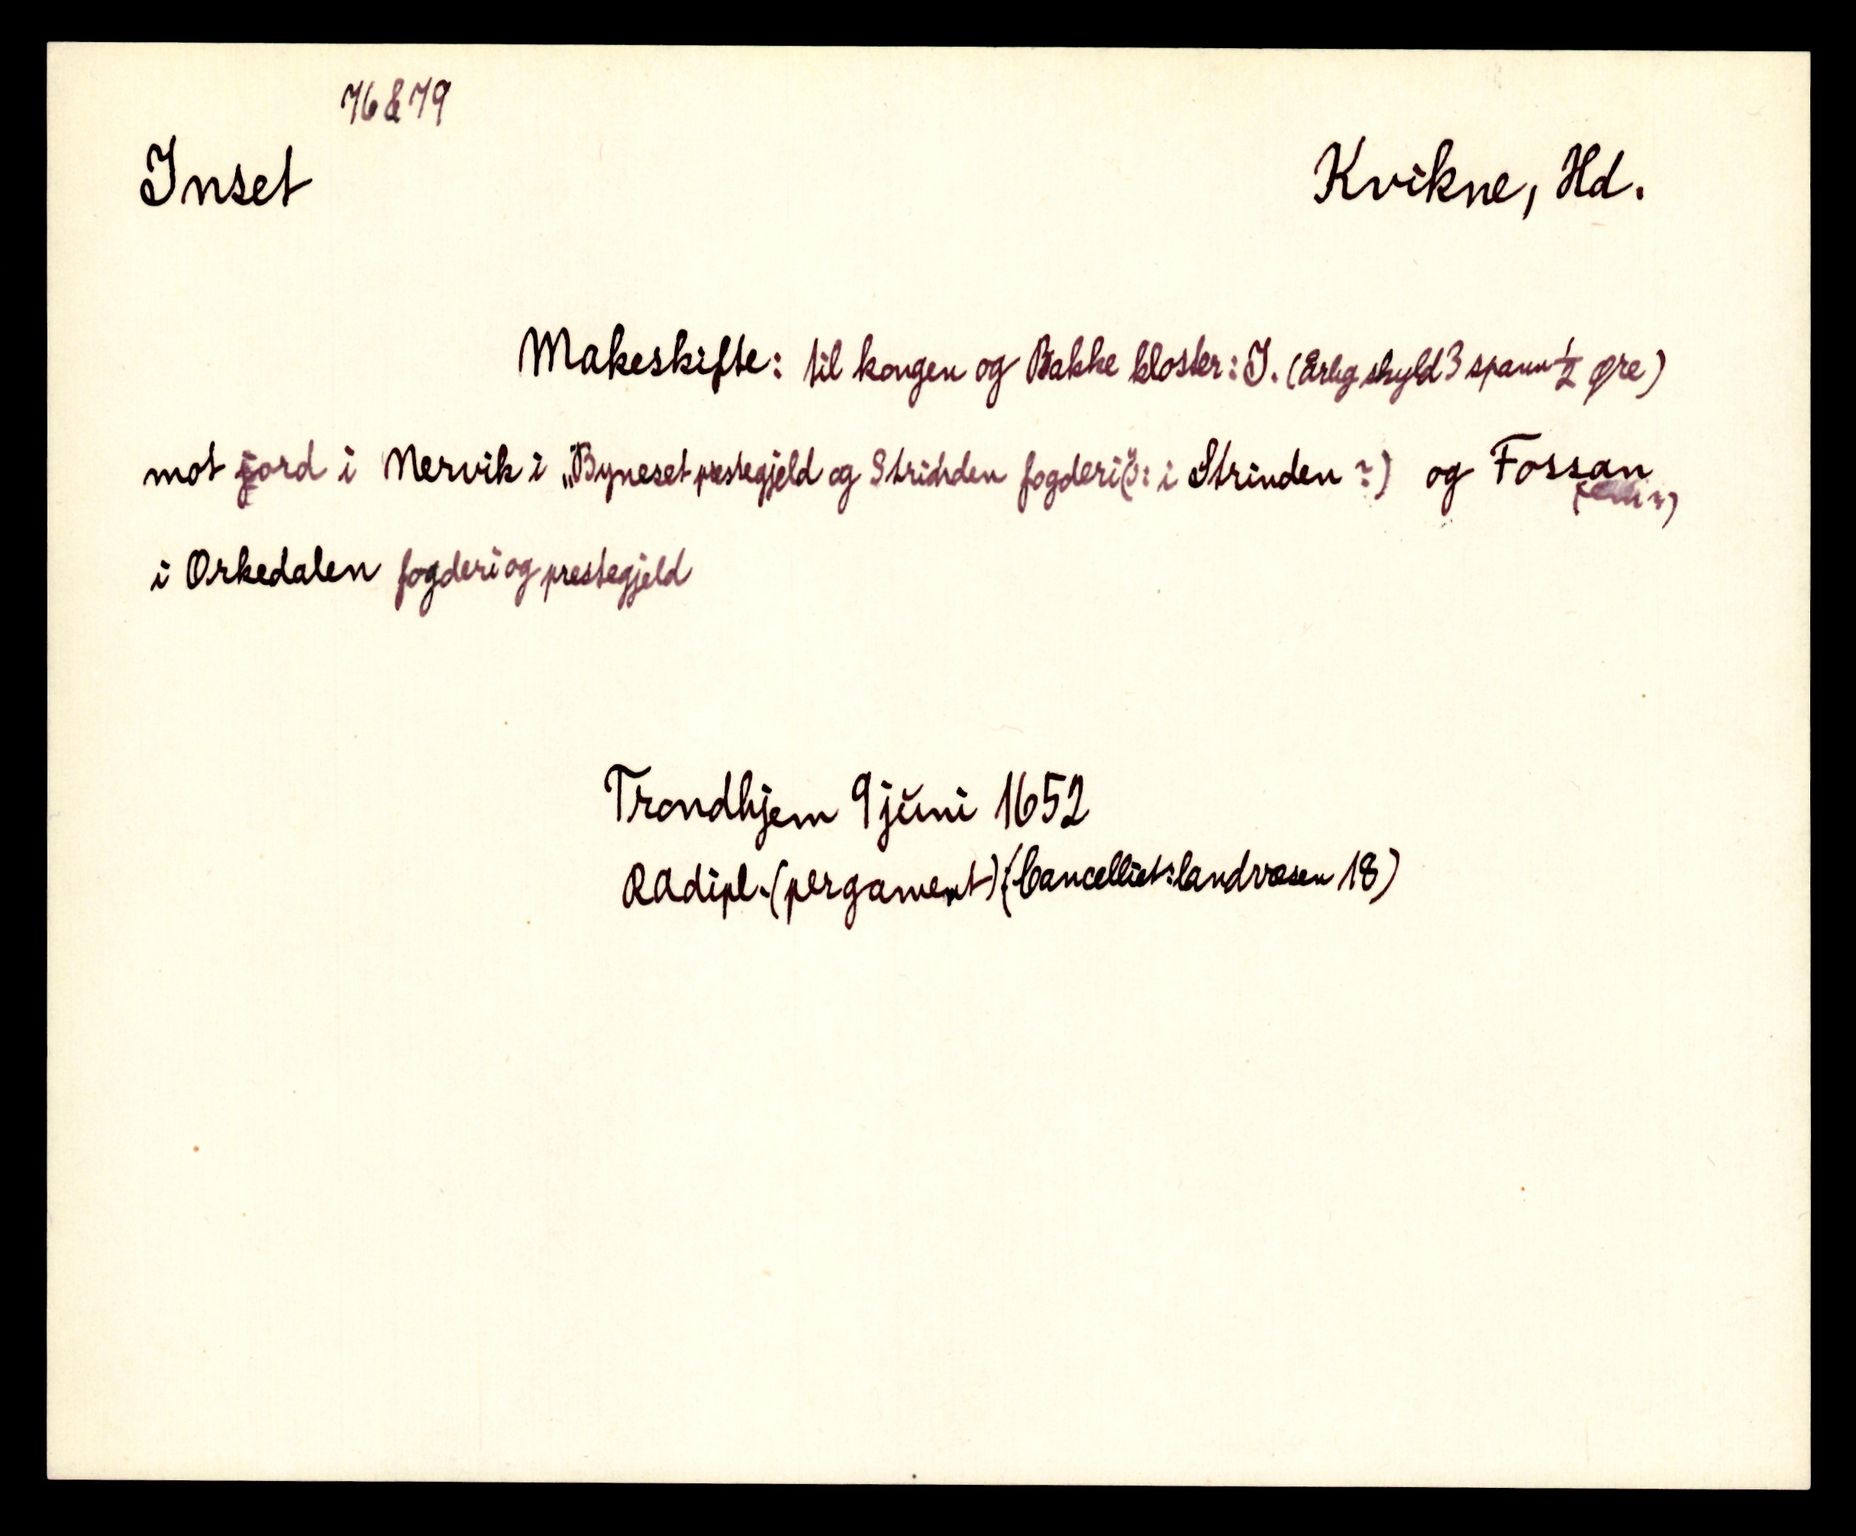 76 & 79
Inset
Kvikne, Hd.
Makeskifte: til kongen og Bakke kloster: I. (Årlig skyld 3 spann ½ øre)
mot jord i Nervik i „Byneset prestegjeld og Strinden fogderi“ (ɔ: i Strinden ?) og Fossan
i Orkedalen fogderi og prestegjeld
Trondhjem 9 juni 1652
RAdipl. (pergament) (Cancelliet: landvæsen 18)